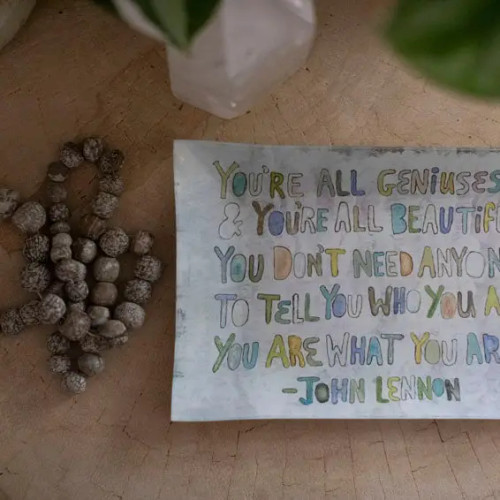 YOU'RE ALL GENiUSES
& YOU'RE ALL BEAUTIF
YOU DON'T NEED ANYON
TO TELL YOU WHO YOU A
YOU ARE WHAT YOU AR
-JOHN LENNON